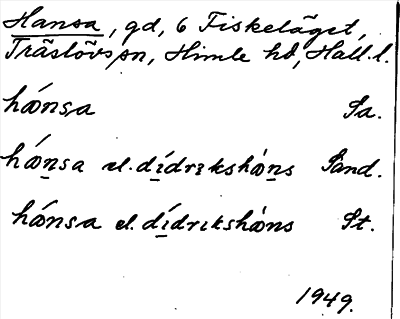 Hansa, gd, 6 Fiskeläget,
Träslövs sn, Himle hd, Hall. l.
hǽnsa Sa.
hǽnsa el. dídrikshæ̀ns Sand.
hǽnsa el. dídrikshæ̀ns St.
1949.